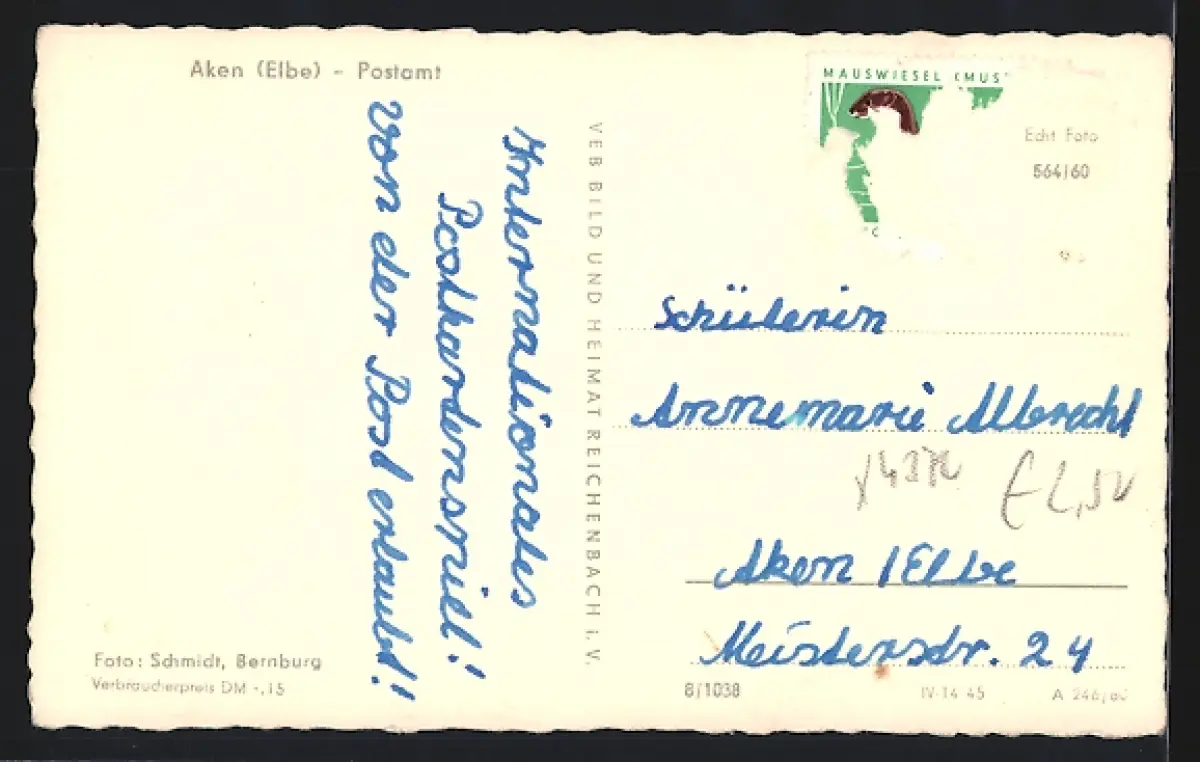 Aken (Elbe) - Postamt
Internationales
Postkartenspiel!
von der Post erlaubt!
Foto: Schmidt, Bernburg
Verbraucherpreis DM -,15
VEB BILD UND HEIMAT REICHENBACH i. V.
MAUSWIESEL (MUS
Echt Foto
564/60
Schülerin
Annemarie Albrecht
Aken /Elbe
Meisterstr. 24
8/1038
IV-14-45
A 246/60